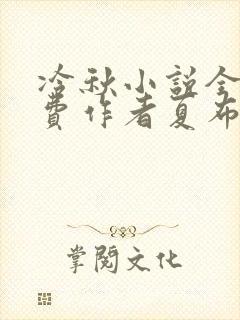 冷秋小説全
費作者夏布
掌閱文化